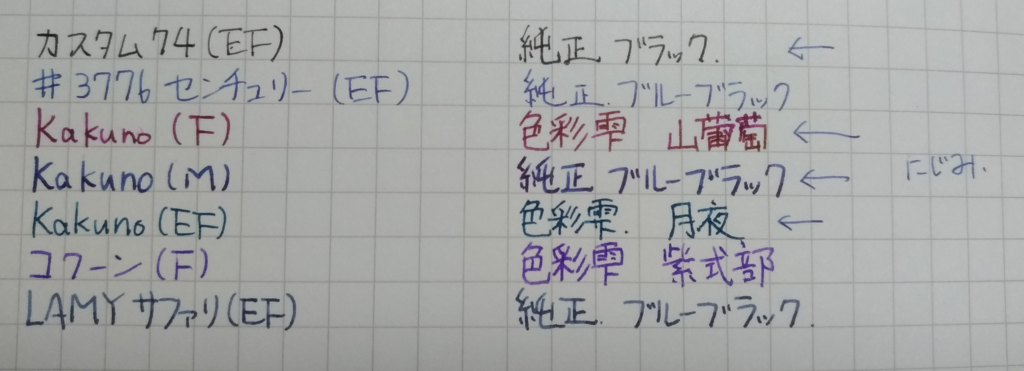 カスタム74(EF) 純正 ブラック. ←
#3776 センチュリー (EF) 純正. ブルーブラック
Kakuno (F) 色彩雫 山葡萄 ←
Kakuno (M) 純正 ブルーブラック ← にじみ.
Kakuno (EF) 色彩雫. 月夜 ←
コクーン (F) 色彩雫 紫式部
LAMY サファリ(EF) 純正. ブルーブラック.